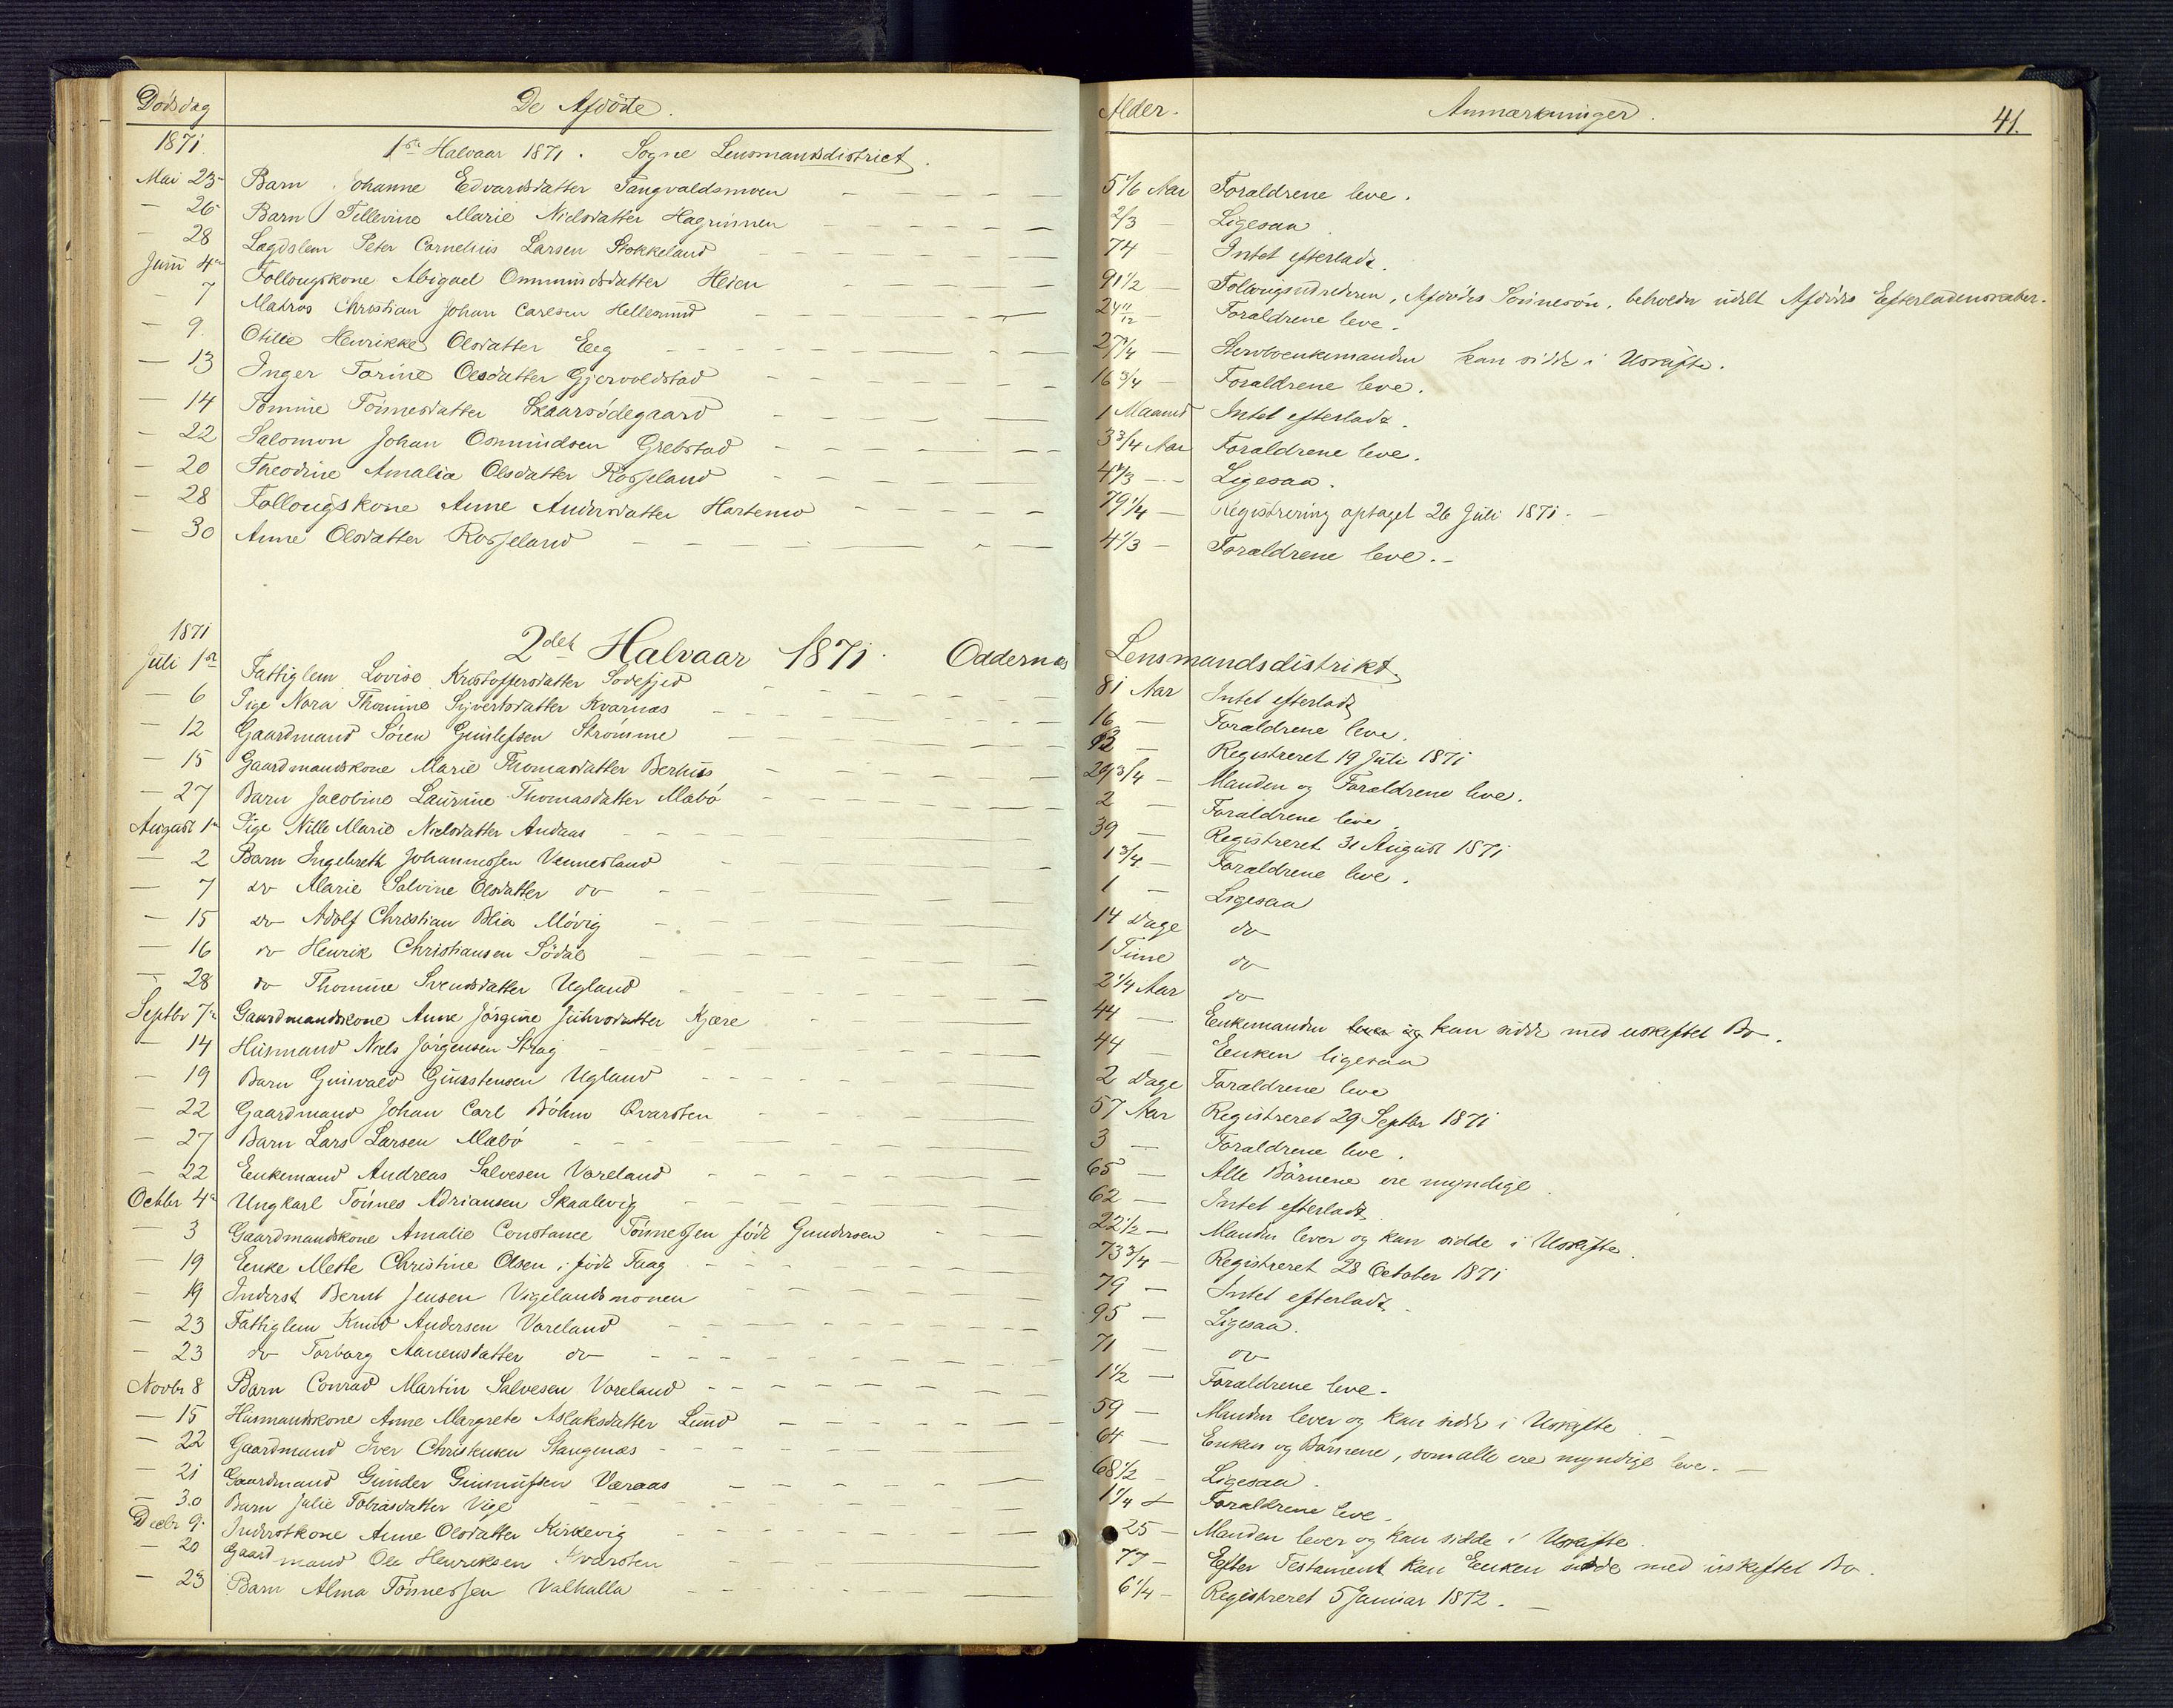 Dødsdag De Afdøde. Alder. Anmærkninger. 41.
1871. 1ste Halvaar 1871. Sogne Lensmandsdistrict.
Mai 23 Barn Johanne Edvardsdatter Tangvaldsmoen 5 1/6 Aar Forældrene leve.
— 26 Barn Tellevine Marie Nielsdatter Hagrinnen 2/3 — Ligesaa
— 28 Lægdslem Peter Cornelius Larsen Stokkeland 74 Intet efterladt.
Juni 4de Follougskone Abigael Ommundsdatter Heien 91 1/2 — Follougsudrederen, Afdødes Sønnesøn, beholdr udelt Afdødes Efterladenskaber.
— 7 Matros Christian Johan Carlsen Hellesund 24 11/12 — Forældrene leve.
— 9 Otilie Henrikke Olsdatter Eeg 27 1/4 — Stervboenkemanden kan sidde i Uskifte.
— 13 Inger Torine Olsdatter Gjervoldstad 16 3/4 — Forældrene leve.
— 14 Tomine Tønnesdatter Skaarsødegaard 1 Maaned Intet efterladt.
— 22 Salomon Johan Osmundsen Grebstad 3 3/4 Aar Forældrene leve.
— 20 Theodine Amalia Olsdatter Rosseland 4 1/3 — Ligesaa.
— 28 Follougskone Anne Andersdatter Hortemo 79 1/4 — Registrering optaget 26 Juli 1871. —
— 30 Anne Olsdatter Rosseland 4 1/3 — Forældrene leve. —
1871 2det Halvaar 1871. Oddernæs Lensmandsdistrikt
Juli 1ste Fattiglem Lovise Kristoffersdatter Sodefjed 81 Aar Intet efterladt
— 6 Pige Nora Thomine Syvertsdatter Kvarnæs 16 — Forældrene leve.
— 12 Gaardmand Søren Gunlefsen Strømme — Registreret 19 Juli 1871
— 15 Gaardmandskone Marie Thomasdatter Berhus 29 3/4 — Manden og Forældrene leve.
— 27 Barn Jacobine Laurine Thomasdatter Mæbø 2 — Forældrene leve
August 1ste Pige Nille Marie Nielsdatter Andaas 39 — Registreret 31 August 1871
— 2 Barn Ingebreth Johannessen Vennesland 1 3/4 — Forældrene leve.
— 7 do Marie Salvine Olsdatter do 1 — Ligesaa
— 15 do Adolf Christian Blia Møvig 14 Dage do
— 16 do Henrik Christiansen Södal 1 Time do
— 28 do Thomine Svendsdatter Ugland 2 1/4 Aar do
Septbr 7de Gaardmandskone Anne Jørgine Juhrsdatter Kjære 44 — Enkemanden lever og kan sidde med uskiftet Bo.
— 14 Husmand Niels Jørgensen Strag 44 — Enken ligesaa
— 19 Barn Gunvald Gunstensen Ugland 2 Dage Forældrene leve
— 22 Gaardmand Johan Carl Bøhm Qvarsten 57 Aar Registreret 29 Septbr 1871
— 27 Barn Lars Larsen Mæbø 3 — Forældrene leve.
— 22 Enkemand Andreas Salvesen Voreland 65 — Alle Børnene ere myndige.
Octbr 4de Ungkarl Tønnes Adriansen Skaalevig 62 — Intet efterladt.
— 3 Gaardmandskone Amalie Constance Tønnessen født Gundersen 22 1/2 — Manden lever og kan sidde i Uskifte.
— 19 Enke Mette Christine Olsen, født Faag 73 3/4 — Registreret 28 October 1871
— 19 Inderst Bernt Jensen Vigelandsmonen 79 — Intet efterladt.
— 23 Fattiglem Knud Andersen Voreland 95 — Ligesaa.
— 23 do Torborg Aanensdatter do 71 — do
Novbr 8 Barn Conrad Martin Salvesen Voreland 1 1/2 — Forældrene leve.
— 15 Husmandskone Anne Margrete Aslaksdatter Lund 59 — Manden lever og kan sidde i Uskifte.
— 22 Gaardmand Iver Christensen Stangenæs 64 — Enken og Børnene, som alle ere myndige leve. —
— 21 Gaardmand Gunder Gunnufsen Væraas 68 1/2 — Ligesaa.
— 30 Barn Julie Tobiasdatter Vige 1 1/4 — Forældrene leve.
Decbr 9 Inderstkone Anne Olsdatter Kirkevig 25 — Manden lever og kan sidde i Uskifte.
— 20 Gaardmand Ole Henriksen Kvarsten 77 — Efter Testament kan Enken sidde med uskiftet Bo.
— 23 Barn Alma Tønnessen Valhalla 6 1/4 — Registreret 5 Januar 1872. —